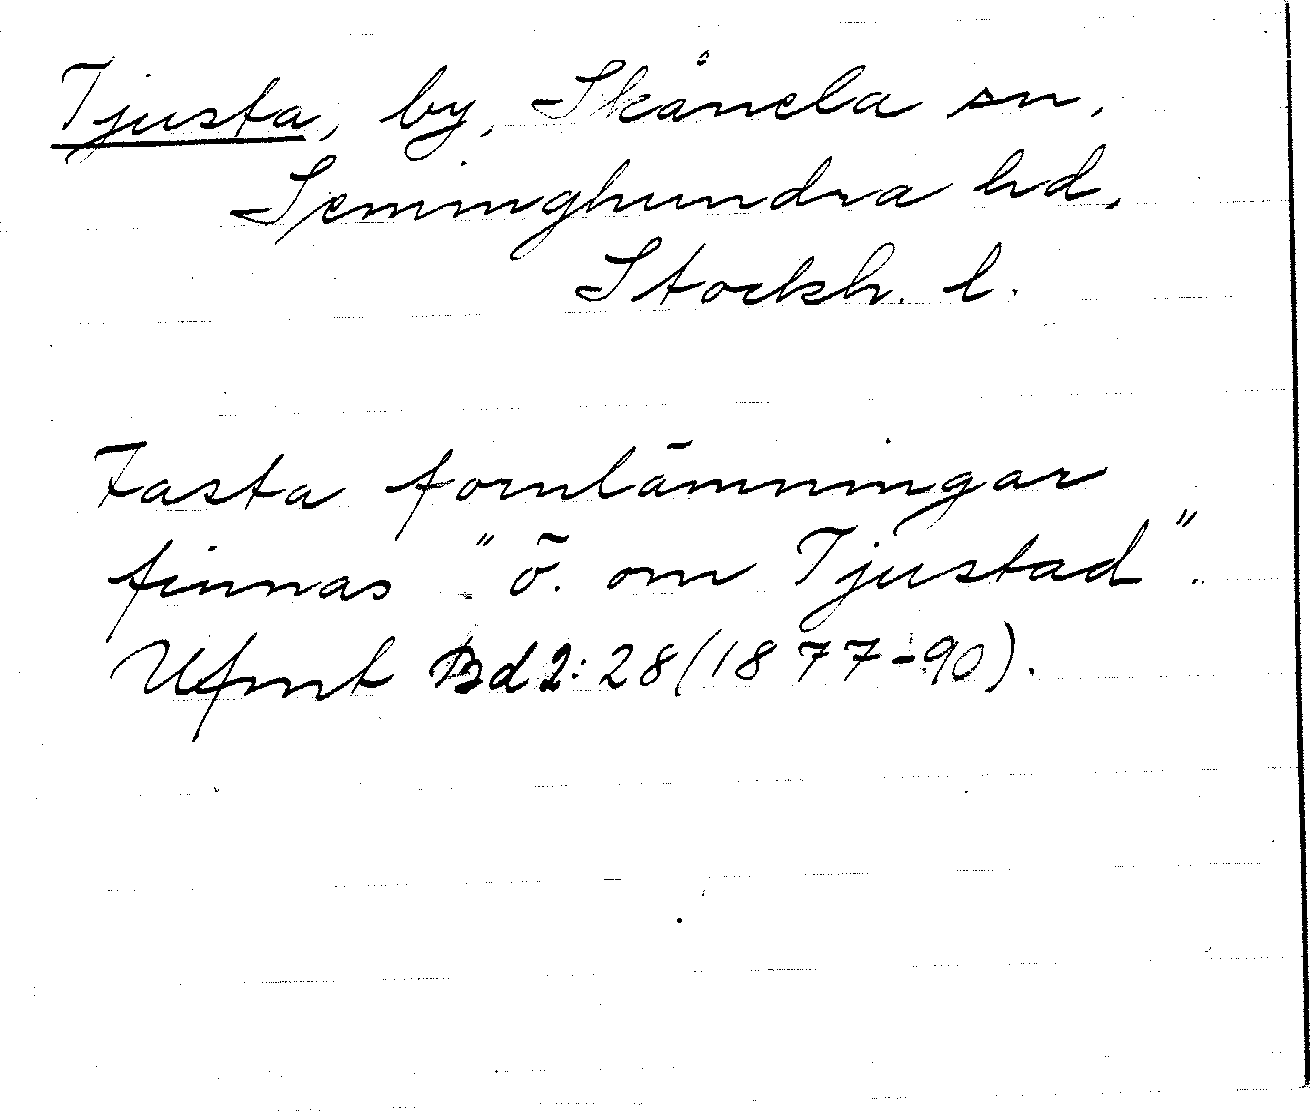 Tjusta, by, Skånela sn,
Seminghundra hd,
Stockh. l.
Fasta fornlämningar
finnas "ö. om Tjustad".
Ufmt Bd2:28(1877-90).